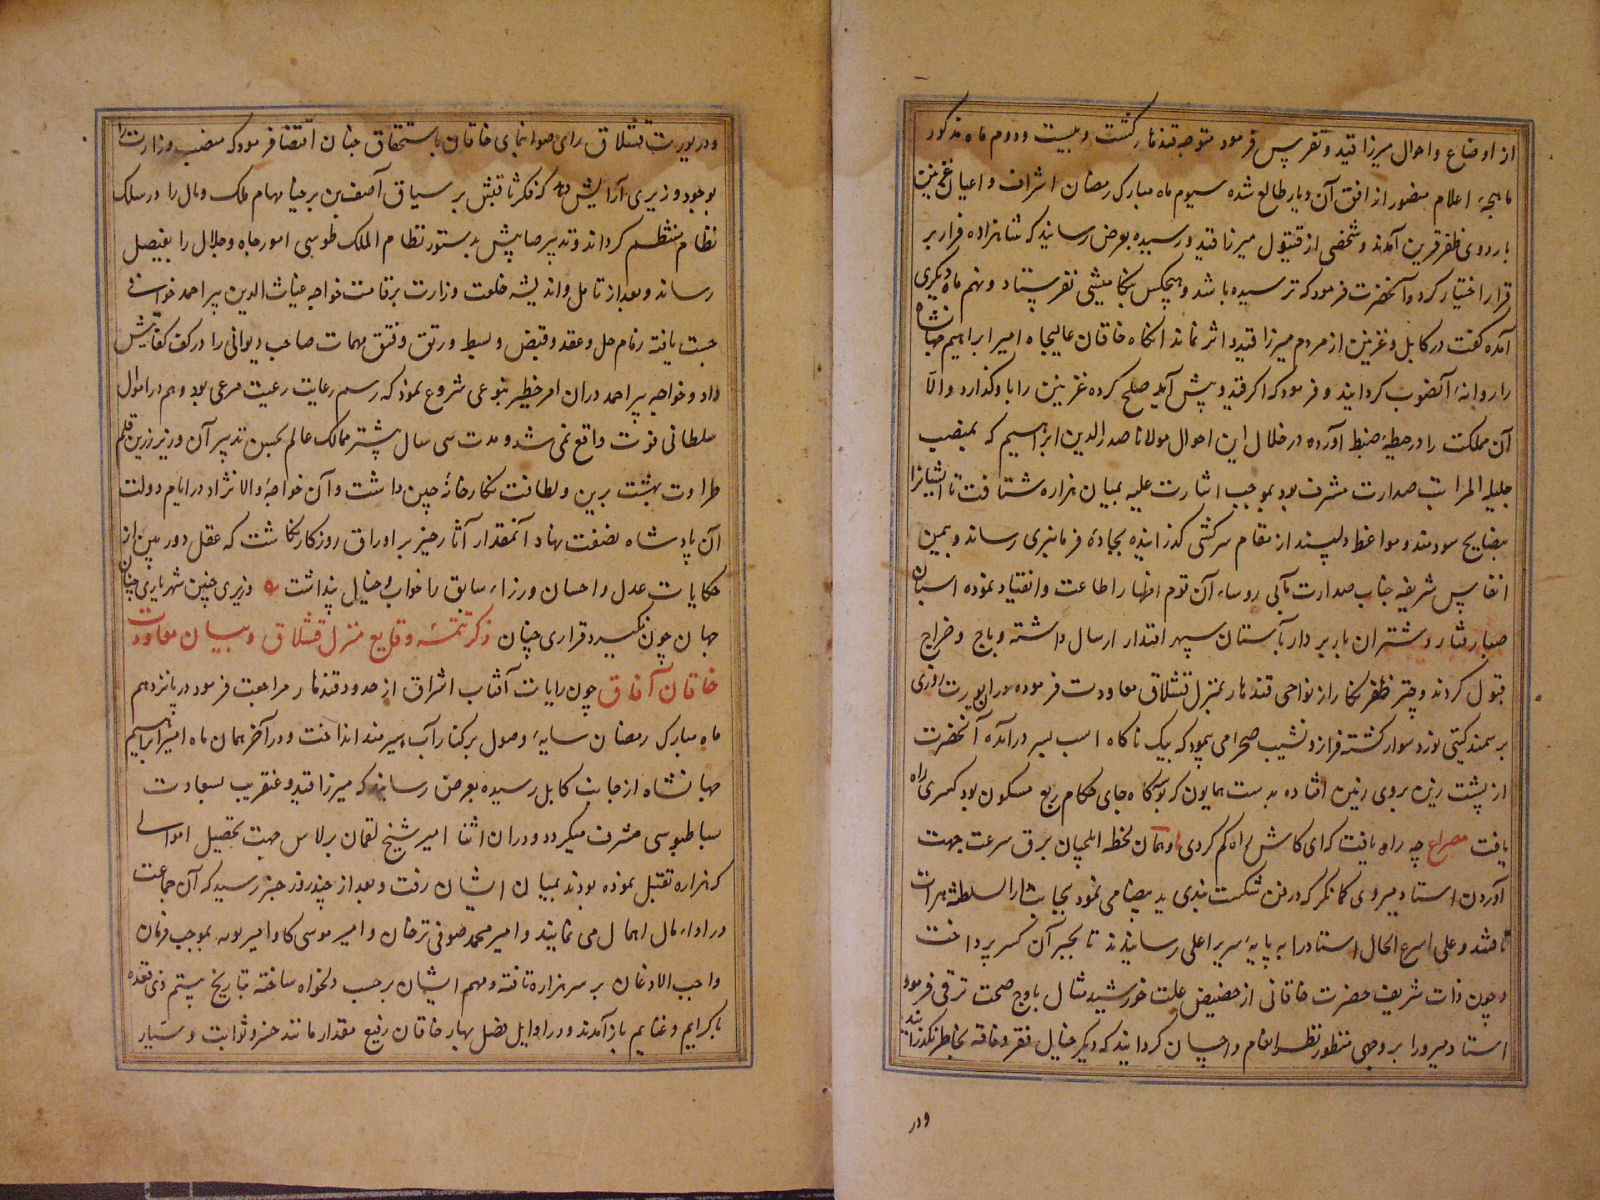 از اوضاع و احوال میرزا قیدو تفرس فرمود متوجه قندهار کشت و بیست و دوم ماه مذکور
ماهچهٔ اعلام منصور از افق آن دیار طالع شده سیوم ماه مبارک رمضان اشراف و اعیان غزنین
باردوی ظفر قرین آمدند و شخصی از قیتول میرزا قیدو رسیده بعرض رسانید که شاهزاده فرار بر
قرار اختیار کرد و آنحضرت فرمود که ترسیده باشد و هیچکس بتکامیشی نفرستاد و نهم ماه دیکری
آمده کفت در کابل و غزنین از مردم میرزا قیدو اثر نماند آنکاه خاقان عالیجاه امیر ابراهیم جهانشاه
را روانهٔ آنصوب کردانید و فرمود که اکر قیدو پیش آید صلح کرده غزنین را باو کذارد و الا
آن مملکت را در حیطهٔ ضبط آورده در خلال این احوال مولانا صدرالدین ابراهیم که بمنصب
جلیله المراتب صدارت مشرف بود بموجب اشارت علیه بمیان هزاره شتافت تا ایشانرا
بنصایح سودمند و مواعظ دلپسند از مقام سرکشی کذرانیده بجادهٔ فرمانبری رساند و بیمن
انفاس شریفه جناب صدارت مآبی روساء آن قوم اظهار اطاعت و انقیاد نموده اسبان
صبا رفتار و شتران باربردار بآستان سپهر اقتدار ارسال داشته و باج و خراج
قبول کردند و چتر ظفر نکار از نواحی قندهار بمنزل قشلاق معاودت فرموده در ان یورت روزی
بر سمند کیتی نورد سوار کشته فراز و نشیب صحرا می پیمود که بیک ناکاه اسب بسر درآمده آنحضرت
از پشت زین بروی زمین افتاده بدست همایون که بوسکاه جای حکام ربع مسکون بود کسری راه
یافت مصراع چه راه یافت که ای کاش راه کم کردی و همان لحظه ایلچیان برق سرعت بجهت
آوردن استاد میروی کمانکر که در فن شکست بندی ید بیضا می نمود بجانب دارالسلطنه هرات
تافتند و علی اسرع الحال استاد را به پایهٔ سریر اعلی رسانیدند تا بجبر آن کسر پرداخت
و چون ذات شریف حضرت خاقانی از حضیض علت خورشید مثال باوج صحت ترقی فرمود
استاد میرو را بر وجهی منظور نظر انعام و احسان کردانید که دیکر خیال فقر و فاقه بخاطر نکذرانید
و در
و در یورت قشلاق رای صوابنمای خاقان باستحقاق چنان اقتضا فرمود که منصب وزارت را
بوجود وزیری آرایش دهد که فکر ثاقبش بر سیاق آصف بن برخیا مهام ملک و مال را در سلک
نظام منتظم کرداند و تدبیر صایبش بدستور نظام الملک طوسی امور جاه و جلال را بفیصل
رساند و بعد از تامل و اندیشه خلعت وزارت بر قامت خواجه غیاث الدین پیر احمد خوافی
چست یافته زمام حل و عقد و قبض و بسط و رتق و فتق مهمات صاحب دیوانی را در کف کفایتش
داد و خواجه پیر احمد در ان امر خطیر بنوعی شروع نمود که رسم رعایت رعیت مرعی بود و هم در اموال
سلطانی فوت واقع نمی شد و مدت سی سال بیشتر ممالک عالم بحسن تدبیر آن وزیر زرین قلم
طراوت بهشت برین و لطافت نکارخانهٔ چین داشت و آن خواجهٔ والا نژاد در ایام دولت
آن پادشاه نصفت نهاد آنمقدار آثار خیر بر اوراق روزکار نکاشت که عقل دوربین از
حکایات عدل و احسان وزراء سابق را خواب و خیال پنداشت وزیری چنین شهریاری چنان
جهان چون نکیرد قراری چنان ذکر تتمهٔ وقایع منزل قشلاق و بیان معاودت
خاقان آفاق چون رایات آفتاب اشراق از حدود قندهار مراجعت فرمود در پانزدهم
ماه مبارک رمضان سایهٔ وصول بر کنار آب هیرمند انداخت و در آخر همان ماه امیر ابراهیم
جهانشاه از جانب کابل رسیده بعرض رسانید که میرزا قیدو عنقریب بسعادت
بساطبوسی مشرف میکردد و در ان اثنا امیر شیخ لقمان برلاس جهت تحصیل اموالی
که هزاره تقبل نموده بودند بمیان ایشان رفت و بعد از چند روز خبر رسید که آن جماعت
در اداء مال اهمال می نمایند و امیر محمد صوفی ترخان و امیر موسی کا و امیر بموجب فرمان
واجب الاذعان بر سر هزاره تافته و مهم ایشان بر حسب دلخواه ساخته بتاریخ بیستم ذی قعده
با کرایم و غنایم باز آمدند و در اوایل فصل بهار خاقان رفیع مقدار مانند خسرو ثوابت و سیار